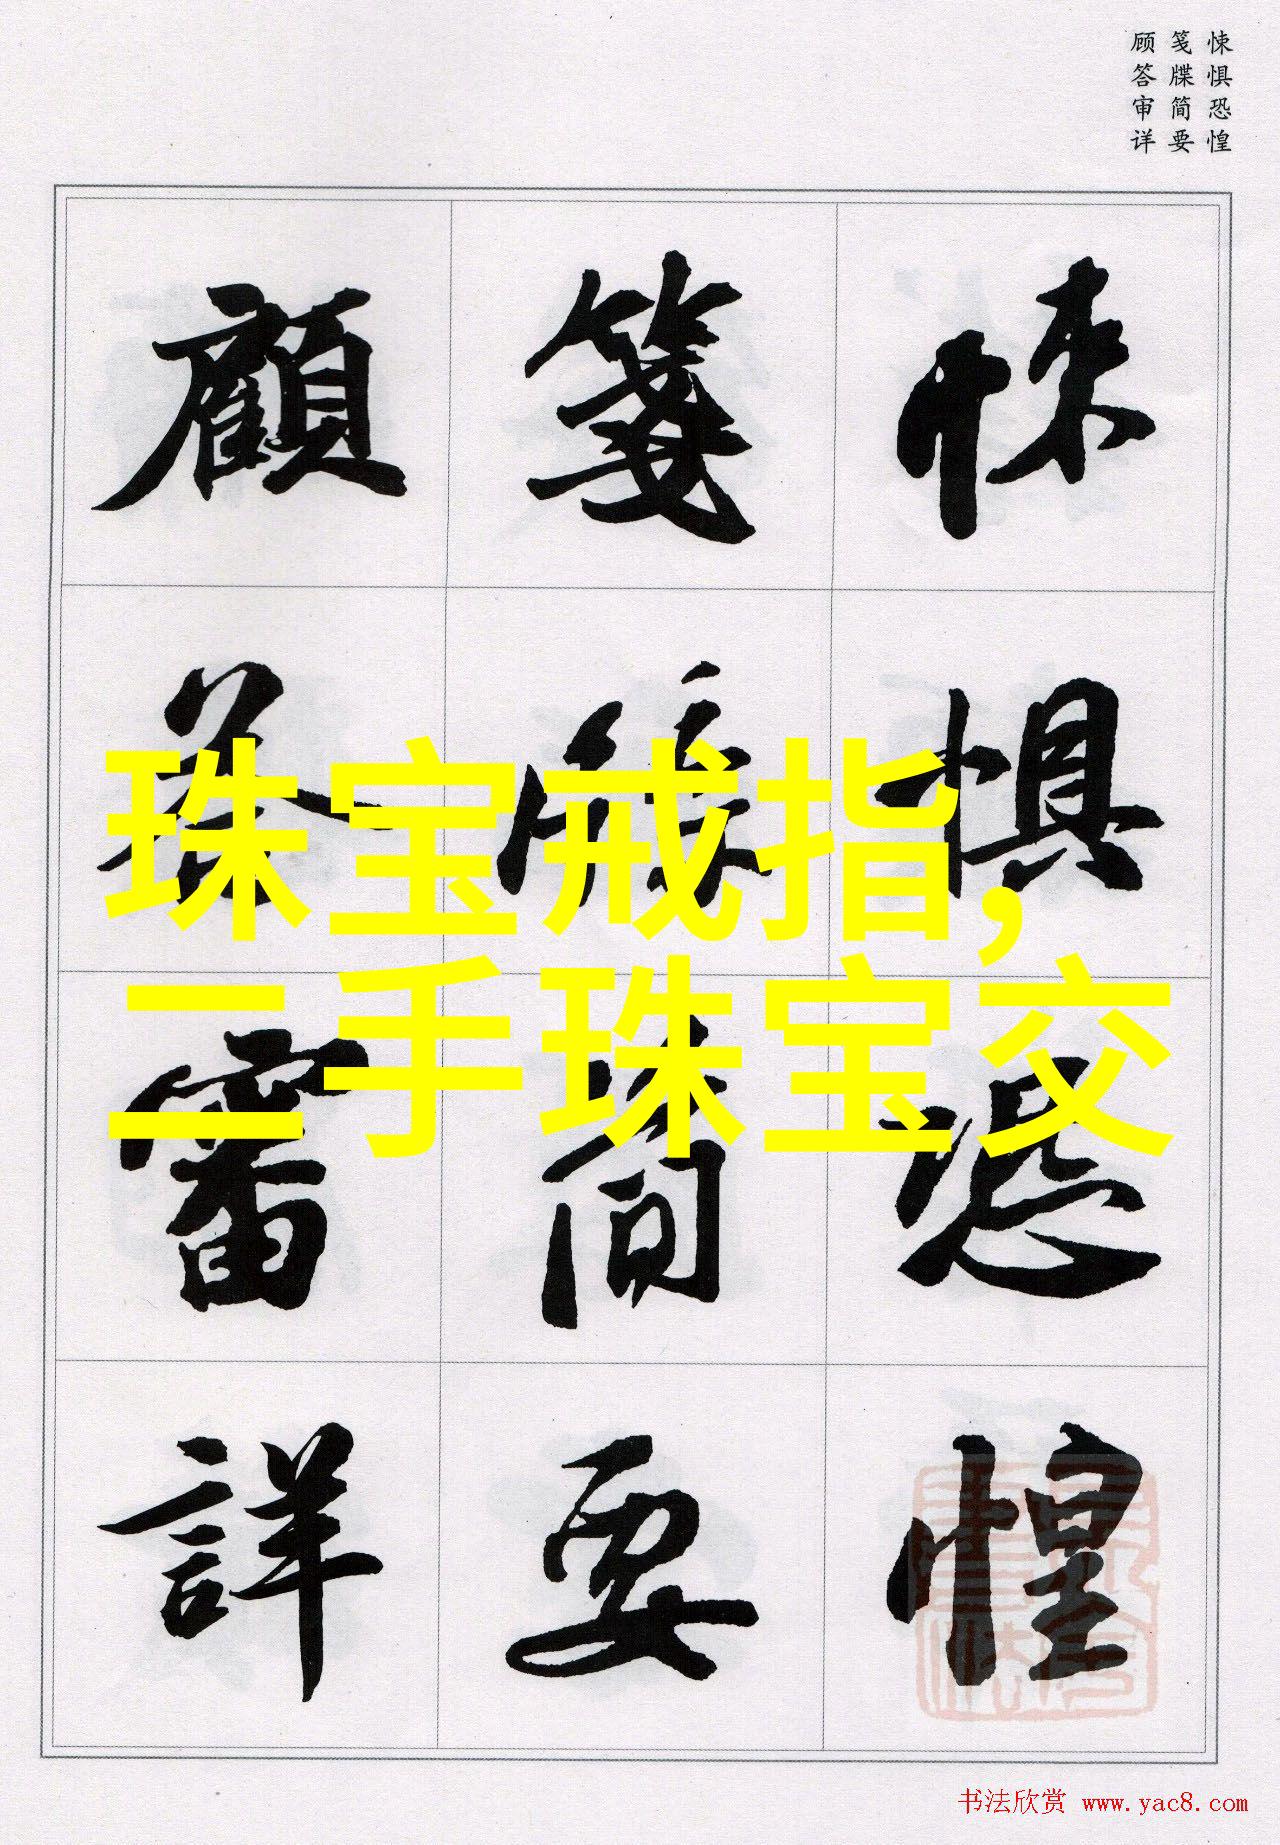 悚惧恐惶
笺牒简要
顾答审详
悚惧恐惶
笺牒简要
顧答審詳
珠宝戒指,
二手珠宝交
书法欣赏 www.yac8.com